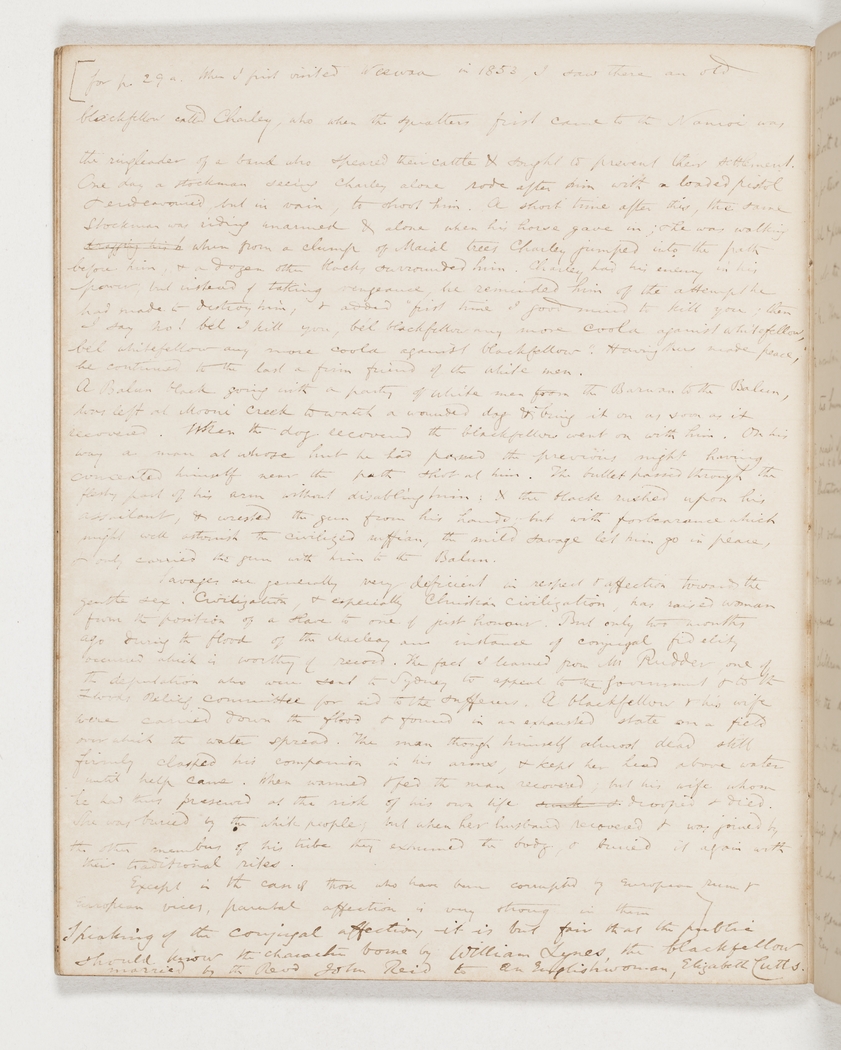 [for p. 29a. When I first visited Weewaa in 1853, I saw there an old
blackfellow called Charley, who when the squatters first came to the Namoi was
the ringleader of a band who speared their cattle & sought to prevent their settlement.
One day a stockman seeing Charley alone rode after him with a loaded pistol
& endeavoured but in vain, to shoot him. A short time after this, the same
Stockman was riding unarmed & alone when his horse gave in; & he was walking
when from a clump of Maial trees Charley jumped into the path
before him, & a dozen other blacks surrounded him. Charley had his enemy in his
power, but instead of taking vengeance, he reminded him of the attempt he
had made to destroy him, & added "first time I good mind to kill you; then
I say No! bel I kill you, bel blackfellow any more coola against whitefellow,
bel whitefellow any more coola against blackfellow". Having thus made peace,
he continued to the last a firm friend of the white men.
A Balun black going with a party of white men from the Barwan to the Balun,
was left at Mooni Creek to watch a wounded dog & bring it on as soon as it
recovered. When the dog recovered the blackfellow went on with him. On his
way a man at whose hut he had passed the previous night having
concealed himself near the path shot at him. The bullet passed through the
fleshy part of his arm without disabling him; & the black rushed upon his
assailant, & wrested the gun from his hands; but with forbearance which
might well astonish the civilized ruffian, the mild savage let him go in peace,
& only carried the gun with him to the Balun.
Savages are generally very deficient in respect & affection towards the
gentle sex. Civilization, & especially Christian civilization, has raised woman
from the position of a slave to one of just honour. But only two months
ago during the flood of the Macleay an instance of conjugal fidelity
occurred which is worthy of record. The fact I learned from Mr Rudder, one of
the deputation who were sent to Sydney to appeal to the Government & to the
Floods Relief Committee for aid to the sufferers. A blackfellow & his wife
were carried down the flood & found in an exhausted state on a field
over which the water spread. The man though himself almost dead still
firmly clasped his companion in his arms, & kept her head above water
until help came. When warmed & fed the man recovered; but his wife whom
he had thus preserved at the risk of his own life drooped & died.
She was buried by the white people; but when her husband recovered & was joined by
the other members of his tribe they exhumed the body, & buried it again with
their traditional rites.
Except in the case of those who have been corrupted by European rum &
European vices, parental affection is very strong in them
Speaking of the conjugal affection, it is but fair that the public
should know the character borne by William Lynes, the blackfellow
married by the Revd John Reid to an Englishwoman, Elizabeth Cutts.